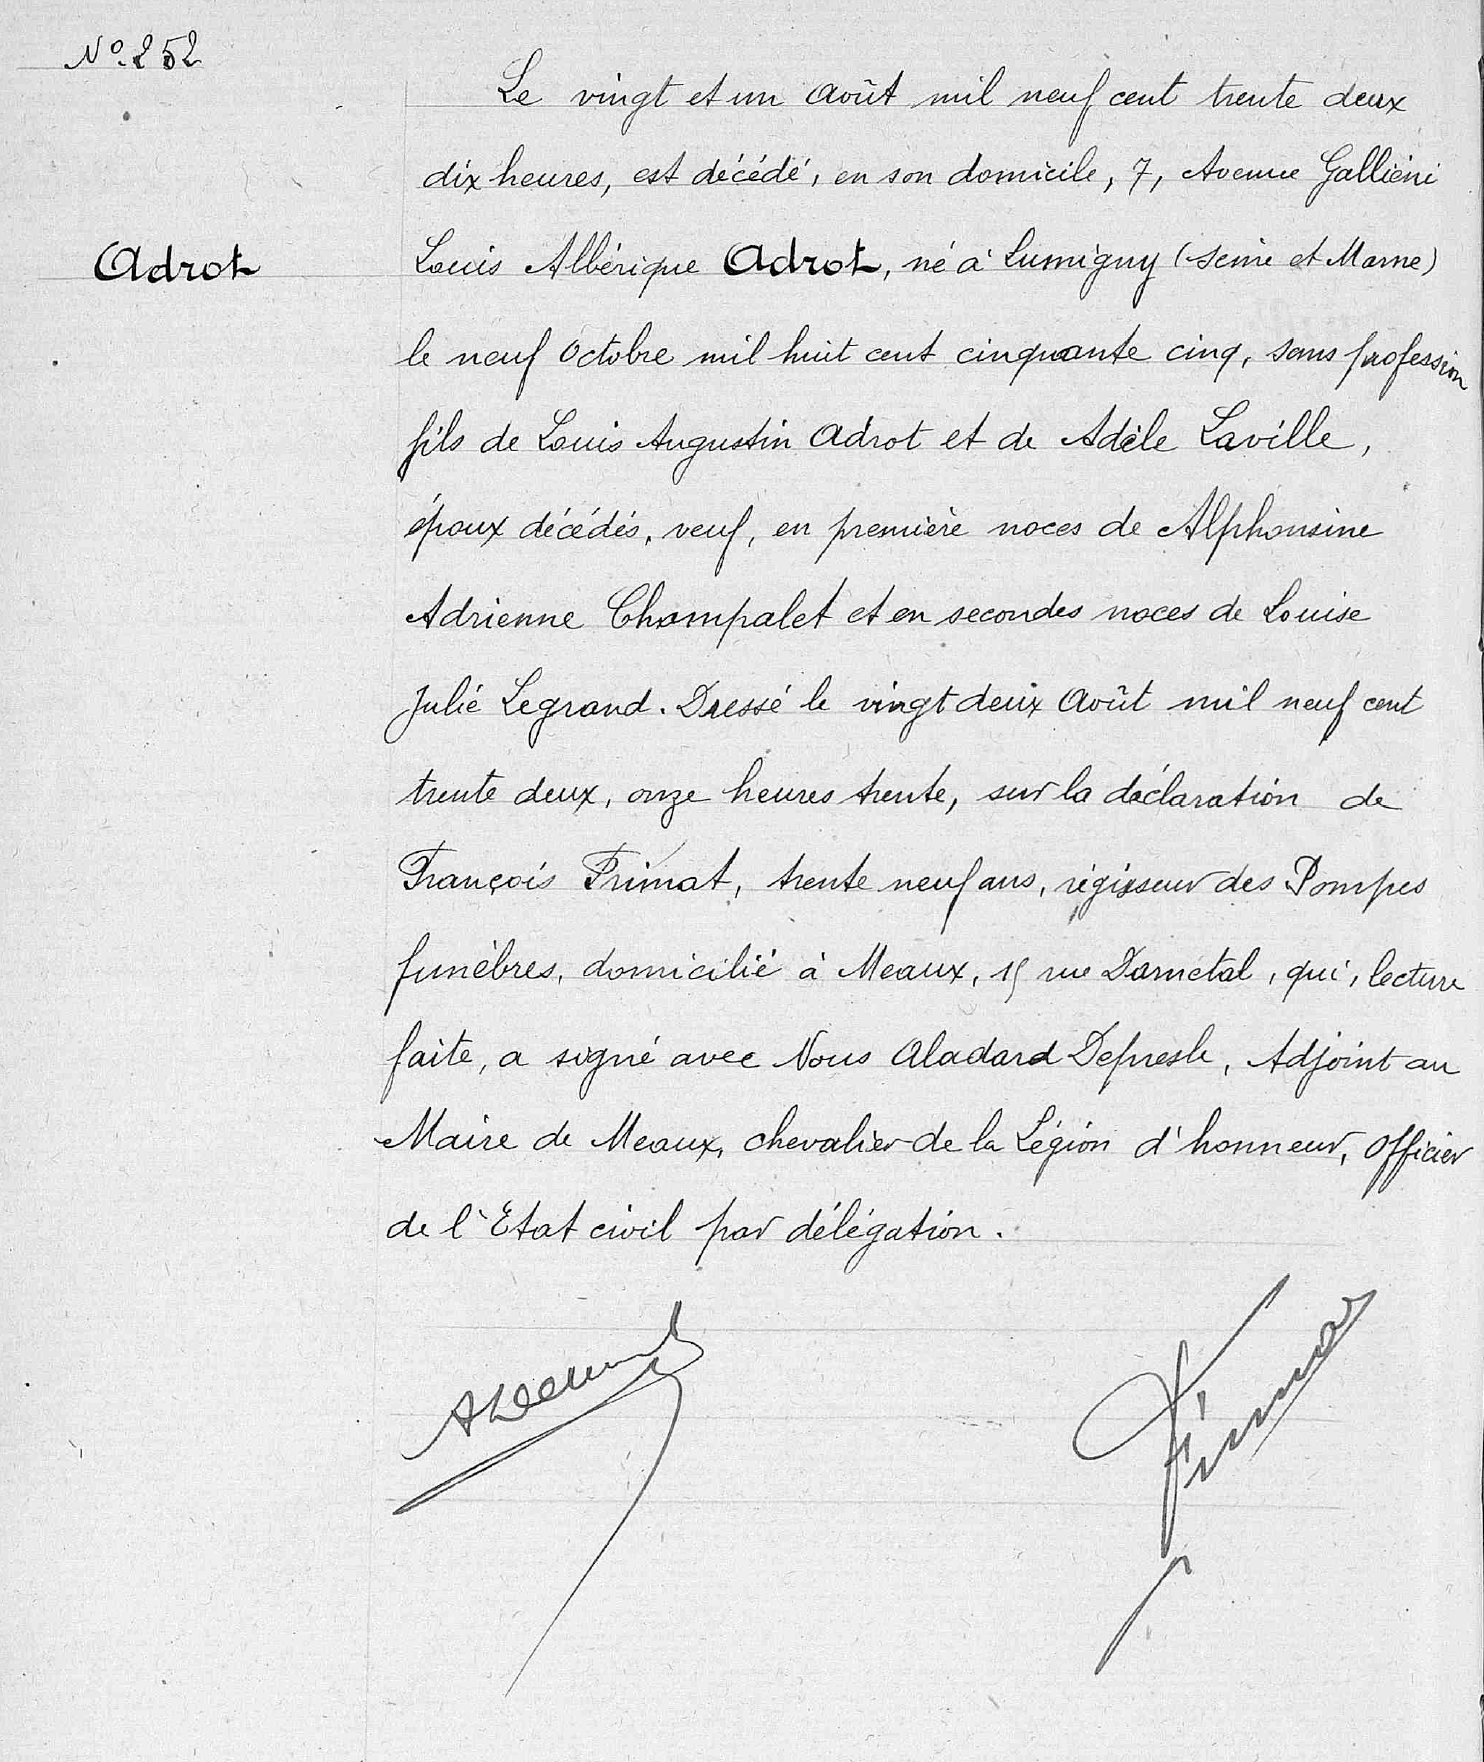 Nº. 252
Le vingt et un Août mil neuf cent trente deux
dix heures, est décédé, en son domicile, 7, Avenue Galliéni
Adrot
Louis Albérique Adrot, né à Lumigny (Seine et Marne)
le neuf Octobre mil huit cent cinquante cinq, sans profession
fils de Louis Augustin Adrot et de Adèle Laville,
époux décédés, veuf, en première noces de Alphonsine
Adrienne Champalet et en secondes noces de Louise
Julie Legrand. Dressé le vingt deux Août mil neuf cent
trente deux, onze heures trente, sur la déclaration de
François Primat, trente neuf ans, régisseur des Pompes
funèbres, domicilié à Meaux, 15 rue Darnetal, qui, lecture
faite, a signé avec Nous Aladard Depresle, Adjoint au
Maire de Meaux, chevalier de la Légion d'honneur, Officier
de l'Etat civil par délégation.
Primat